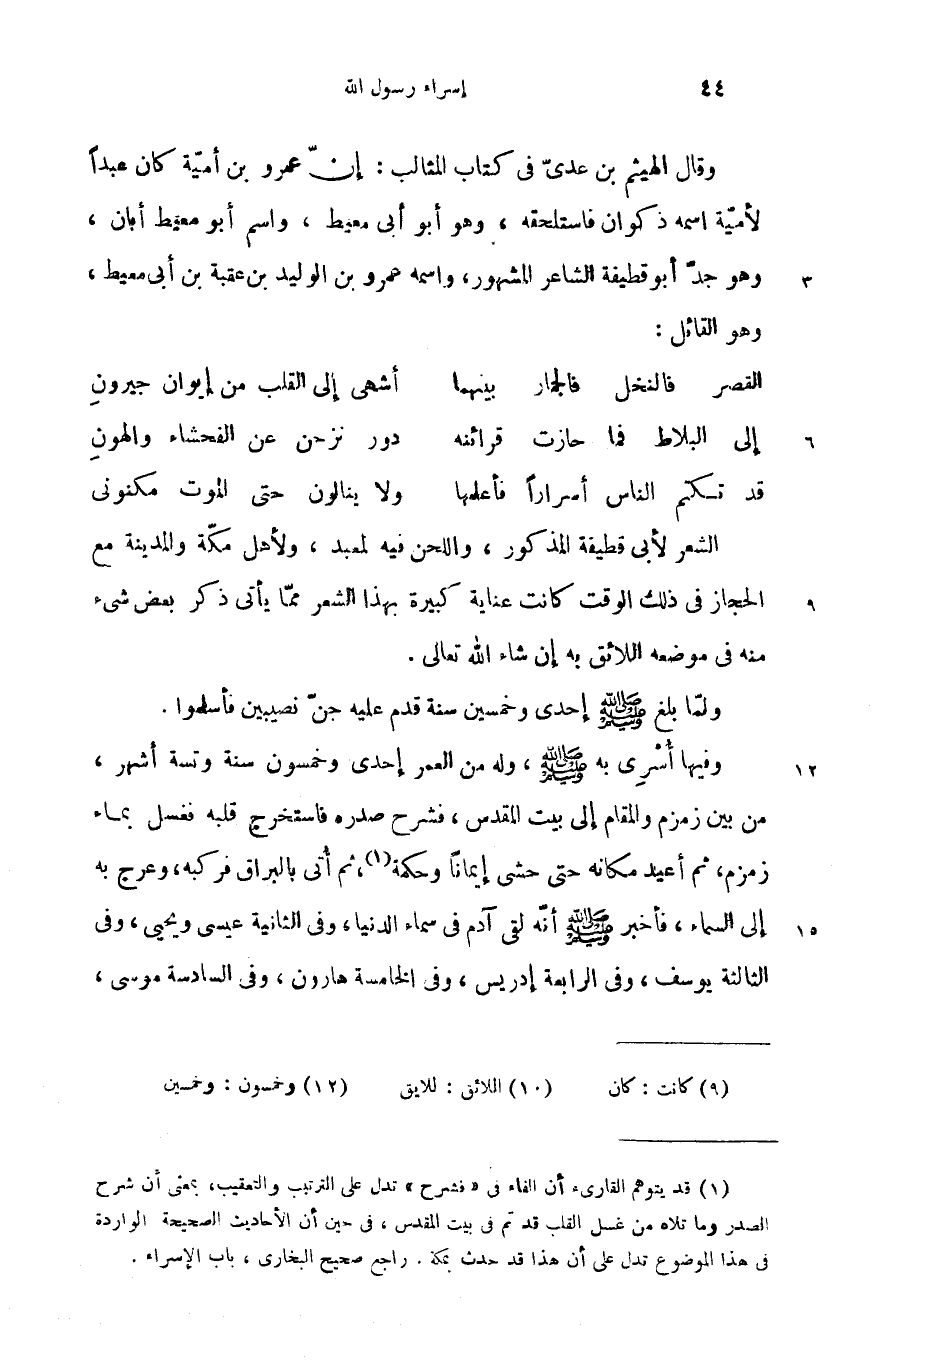 ٤٤ إسراء رسول الله
وقال الهيثم بن عدىّ فى كتاب المثالب : إنّ عمرو بن أميّة كان عبداً
لأميّة اسمه ذكوان فاستلحقه ، وهو أبو أبى معيط ، واسم أبو معيط أبان ،
٣ وهو جدّ أبو قطيفة الشاعر المشهور، واسمه عمرو بن الوليد بن عقبة بن أبى معيط ،
وهو القائل :
القصر فالنخل فالجار بينهما أشهى إلى القلب من إيوان جيرونِ
٦ إلى البلاط فما حازت قرائنه دور نزحن عن الفحشاء والهونِ
قد تكتم الناس أسراراً فأعلمها ولا ينالون حتى الموت مكنونى
الشعر لأبى قطيفة المذكور ، واللحن فيه لمعبد ، ولأهل مكّة والمدينة مع
٩ الحجاز فى ذلك الوقت كانت عناية كبيرة بهذا الشعر ممّا يأتى ذكر بعض شىء
منه فى موضعه اللائق به إن شاء الله تعالى .
ولمّا بلغ ﷺ إحدى وخمسين سنة قدم عليه جنّ نصيبين فأسلموا .
١٢ وفيها أُسْرِى به ﷺ ، وله من العمر إحدى وخمسون سنة وتسة أشهر ،
من بين زمزم والمقام إلى بيت المقدس ، فشرح صدره فاستخرج قلبه فغسل بماء
زمزم، ثم أعيد مكانه حتى حشى إيمانًا وحكمة(١)، ثم أُتى بالبراق فركبه، وعرج به
١٥ إلى السماء ، فأخبر ﷺ أنّه لقى آدم فى سماء الدنيا، وفى الثانية عيسى ويحيى ، وفى
الثالثة يوسف ، وفى الرابعة إدريس ، وفى الخامسة هارون ، وفى السادسة موسى ،
(٩) كانت : كان (١٠) اللائق : للايق (١٢) وخمسون : وخمسين
(١) قد يتوهم القارىء أن الفاء فى « فشرح » تدل على الترتيب والتعقيب، بمعنى أن شرح
الصدر وما تلاه من غسل القلب قد تم فى بيت المقدس ، فى حين أن الأحاديث الصحيحة الواردة
فى هذا الموضوع تدل على أن هذا قد حدث بمكة . راجع صحيح البخارى ، باب الإسراء .